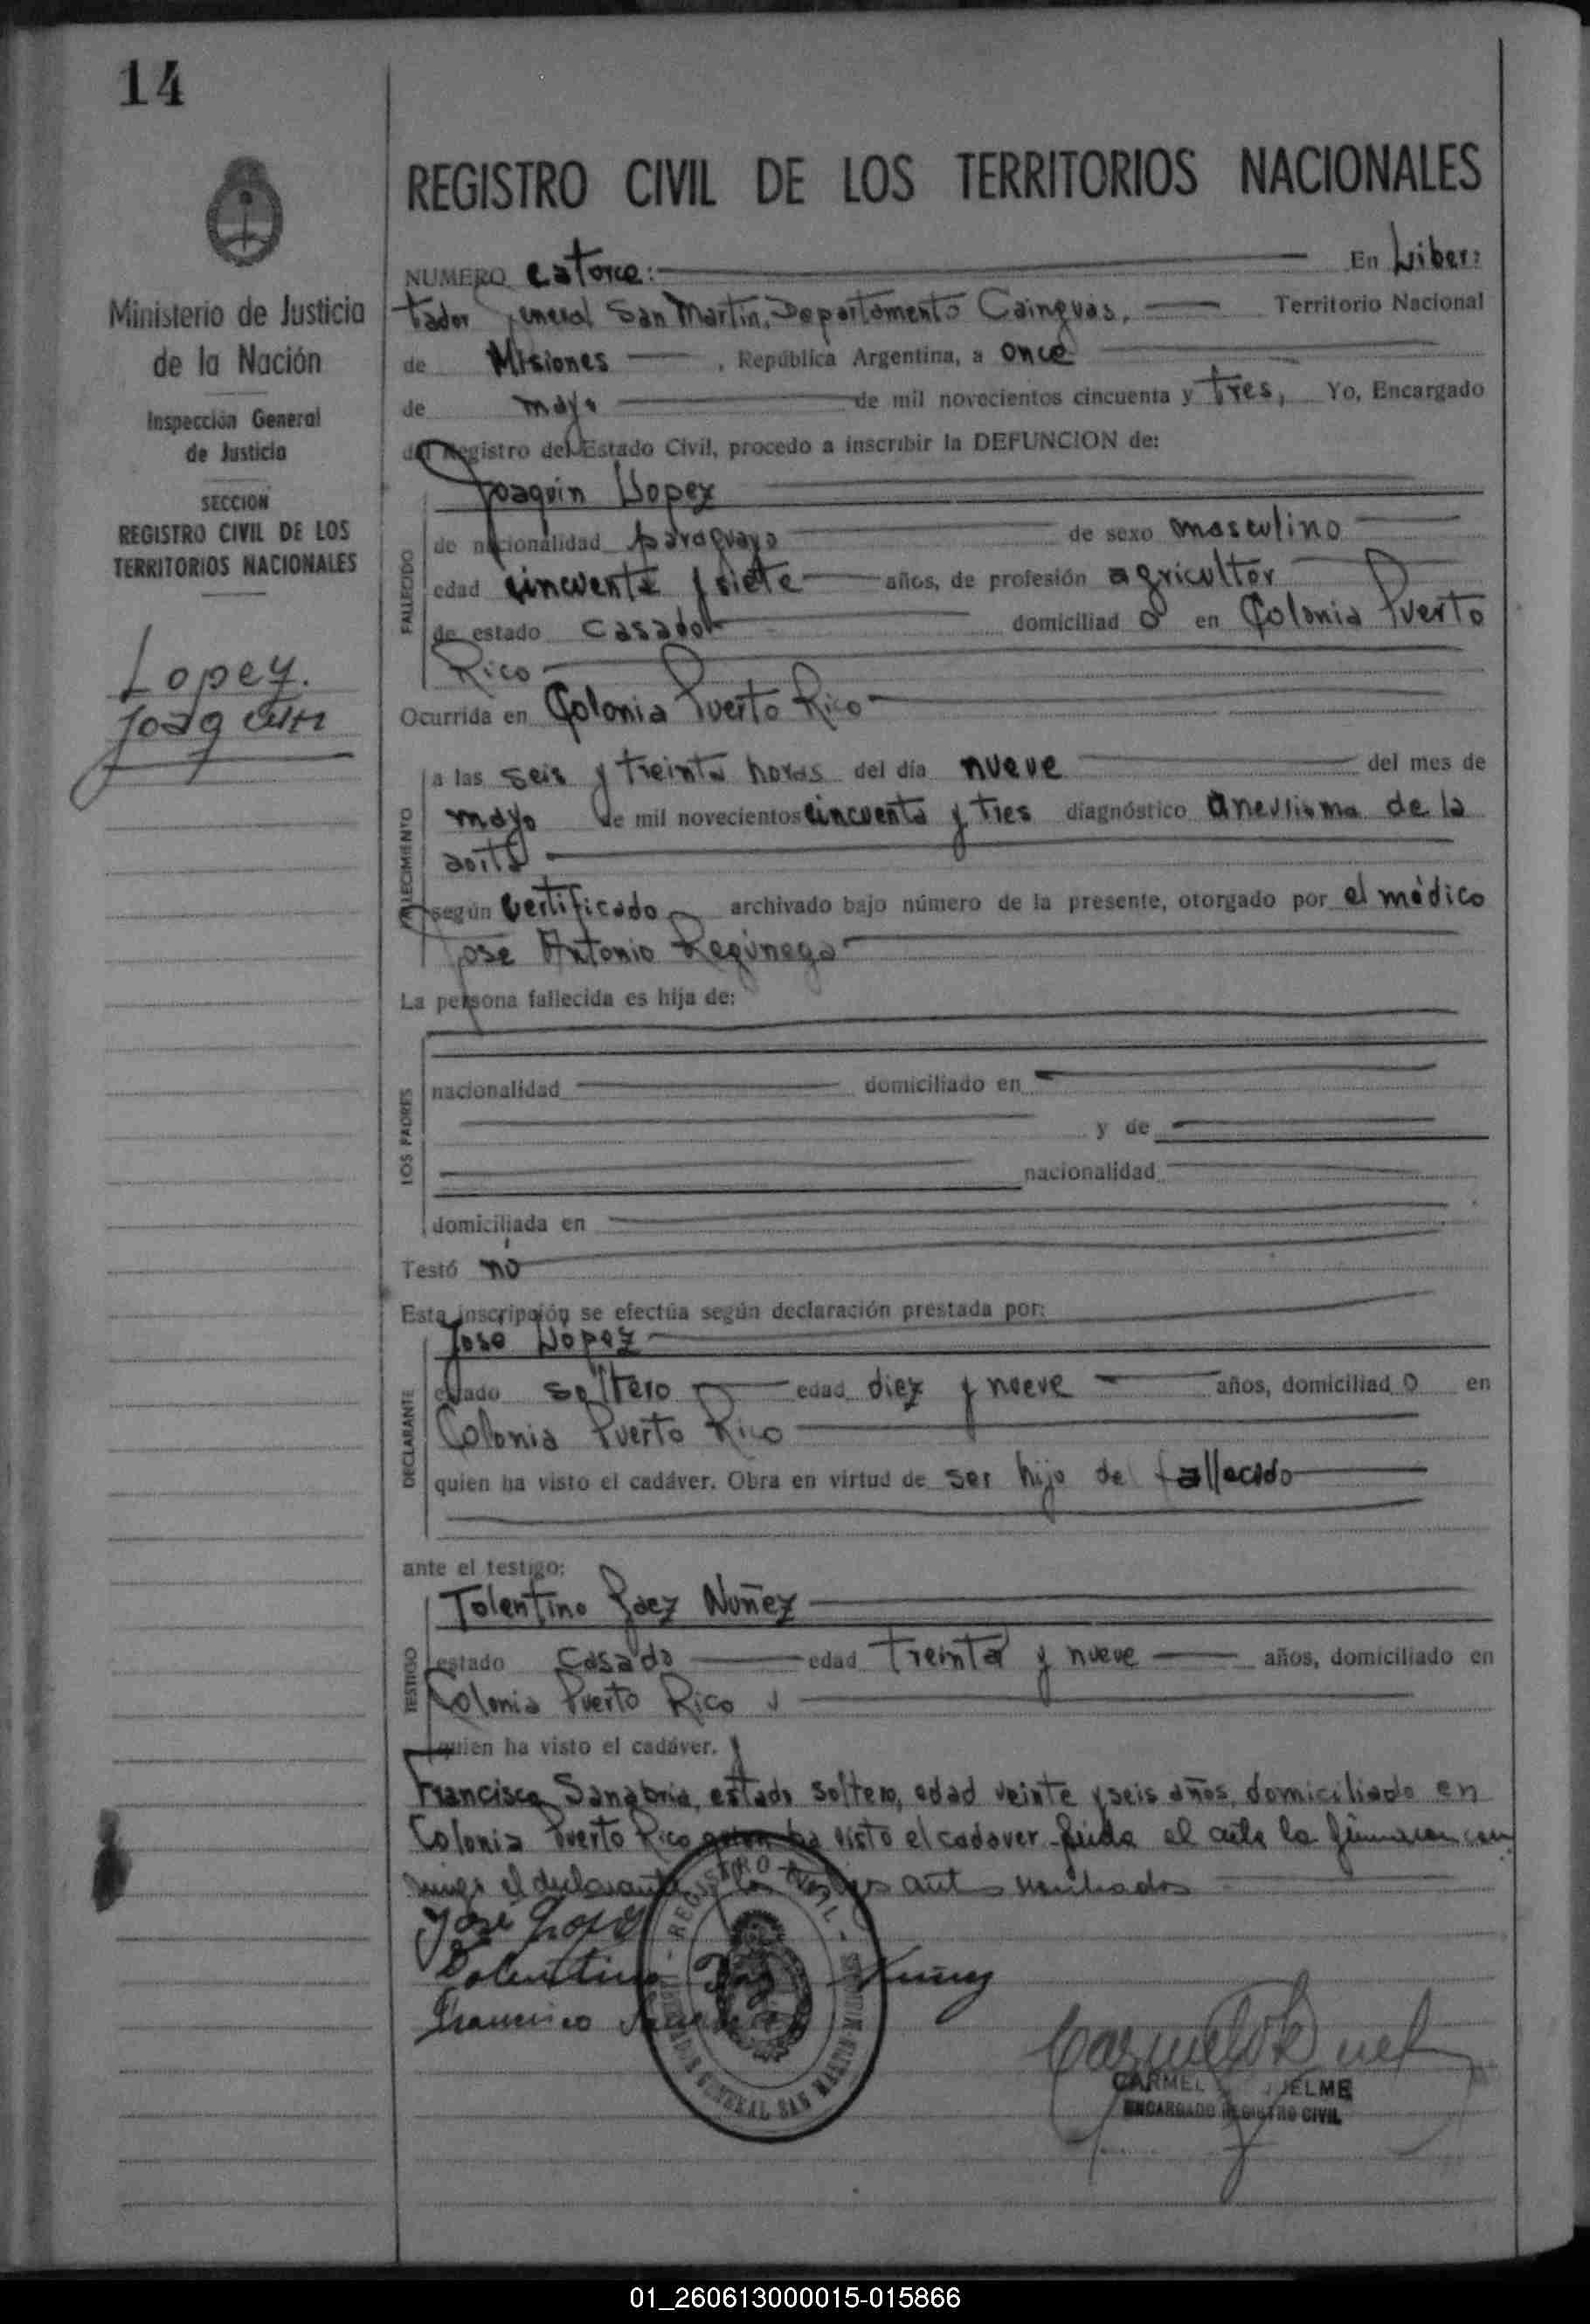 14
REGISTRO CIVIL DE LOS TERRITORIOS NACIONALES
Ministerio de Justicia
de la Nación
Inspección General
de Justicia
SECCION
REGISTRO CIVIL DE LOS
TERRITORIOS NACIONALES
Lopez.
Joaquin
NUMERO catorce: En Liber:
tador General San Martin, Departamento Cainguas, Territorio Nacional
de Misiones, República Argentina, a once
de mayo de mil novecientos cincuenta y tres, Yo, Encargado
del Registro del Estado Civil, procedo a inscribir la DEFUNCION de:
Joaquin Lopez
FALLECIDO
de nacionalidad paraguaya de sexo masculino
edad cincuenta y siete años, de profesión agricultor
de estado casado domiciliad o en Colonia Puerto
Rico
Ocurrida en Colonia Puerto Rico
FALLECIMIENTO
a las seis y treinta horas del día nueve del mes de
mayo de mil novecientos cincuenta y tres diagnóstico aneurisma de la
aorta
según certificado archivado bajo número de la presente, otorgado por el médico
Jose Antonio
La persona fallecida es hija de:
LOS PADRES
nacionalidad domiciliado en
y de
nacionalidad
domiciliada en
Testó no
Esta inscripción se efectúa según declaración prestada por:
Jose Lopez
DECLARANTE
estado soltero edad diez y nueve años, domiciliad o en
Colonia Puerto Rico
quien ha visto el cadáver. Obra en virtud de ser hijo del fallecido
ante el testigo:
Tolentino Paez Nuñez
TESTIGO
estado casado edad treinta y nueve años, domiciliado en
Colonia Puerto Rico
quien ha visto el cadáver. y
Francisco Sanabria, estado soltero, edad veinte y seis años, domiciliado en
Colonia Puerto Rico quien ha visto el cadaver - leida el acta la firmaron con
migo el declarante y los testigos antes nombrados
José Lopez
Tolentino Paez Nuñez
Francisco
REGISTRO CIVIL
LIBERTADOR GENERAL SAN MARTIN
CARMEL
ENCARGADO REGISTRO CIVIL
01_260613000015-015866